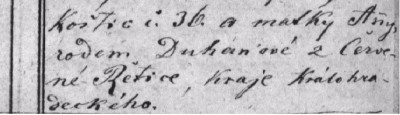 Koštic č. 36. a matky Anny
rodem Duhanové z Červe-
né Řečice, kraje Králohra-
deckého.